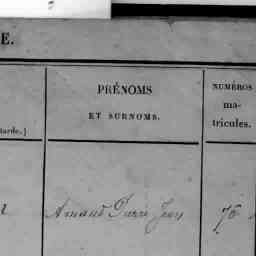 E.
PRÉNOMS
ET SURNOMS.
NUMÉROS
ma-
tricules.
tarde.)
Arnaud Pierre Jean
76